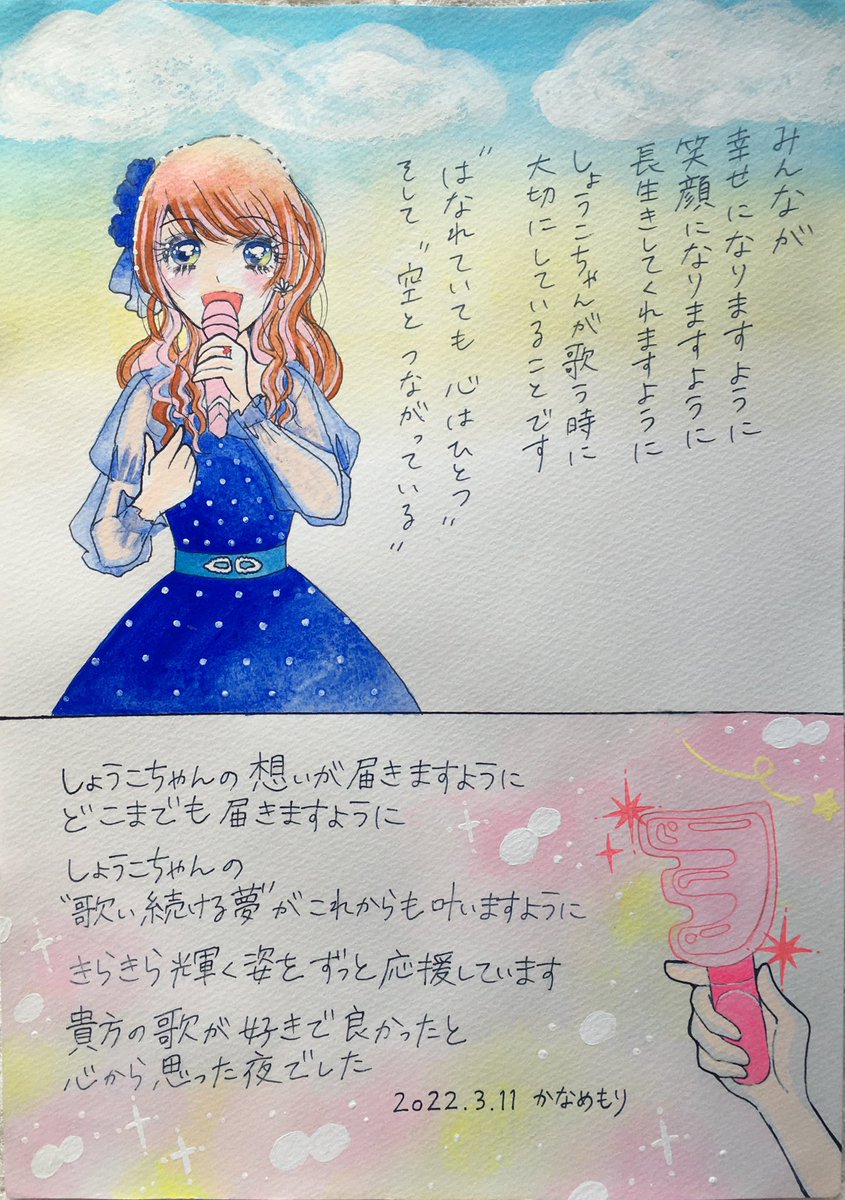 みんなが
幸せになりますように
笑顔になりますように
長生きしてくれますように
しょうこちゃんが歌う時に
大切にしていることです
"はなれていても 心はひとつ"
そして "空と つながっている"
しょうこちゃんの想いが届きますように
どこまでも届きますように
しょうこちゃんの
"歌い続ける夢"がこれからも叶いますように
きらきら輝く姿をずっと応援しています
貴方の歌が好きで良かったと
心から思った夜でした
2022.3.11 かなめもり